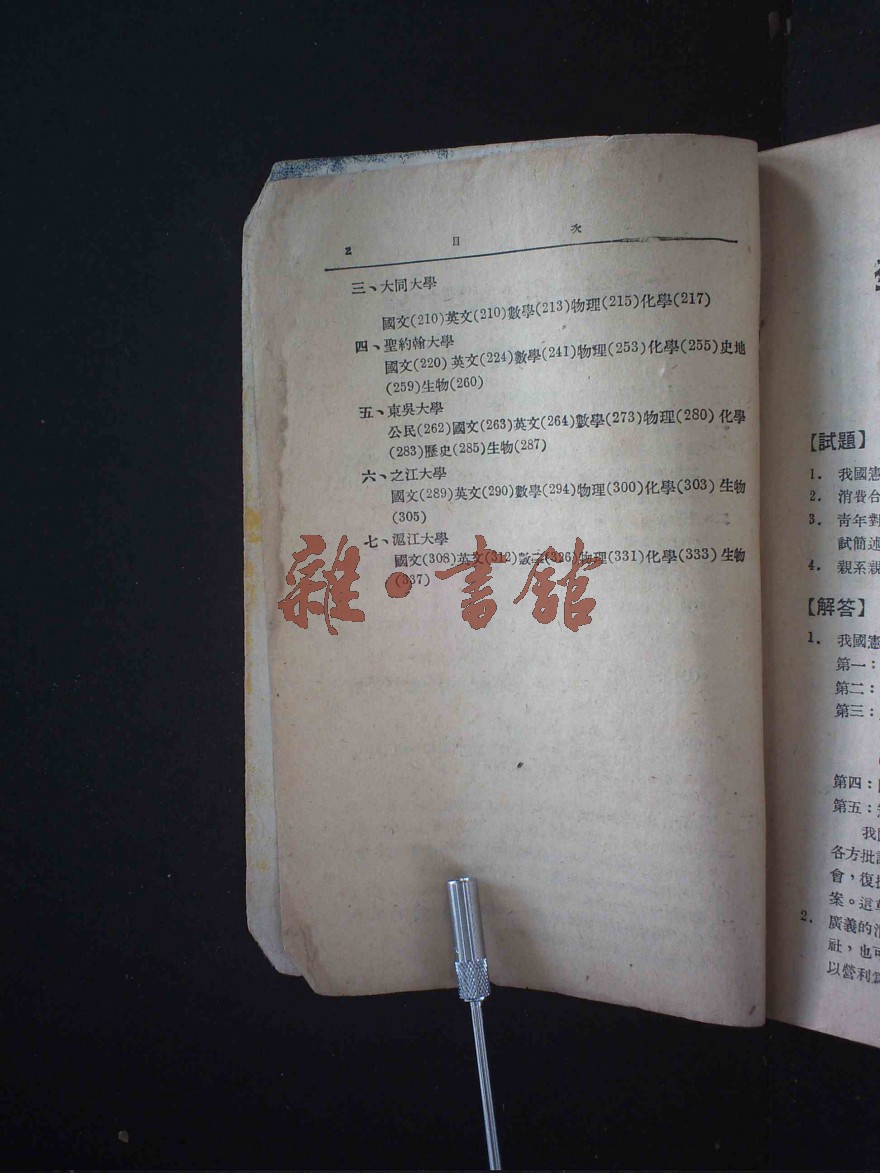 2 目 次
三、大同大學
國文(210)英文(210)數學(213)物理(215)化學(217)
四、聖約翰大學
國文(220)英文(224)數學(241)物理(253)化學(255)史地
(259)生物(260)
五、東吳大學
公民(262)國文(263)英文(264)數學(273)物理(280)化學
(283)歷史(285)生物(287)
六、之江大學
國文(289)英文(290)數學(294)物理(300)化學(303)生物
(305)
七、滬江大學
國文(308)英文(312)數學(326)物理(331)化學(333)生物
(337)
雜·書館
【試題】
1. 我國憲
2. 消費合
3. 青年對
試簡述
4. 親系親
【解答】
1. 我國憲
第一：
第二：
第三：
第四：
第五：
我國
各方批評
會，復
案。這
2. 廣義的消
社，也可
以營利為